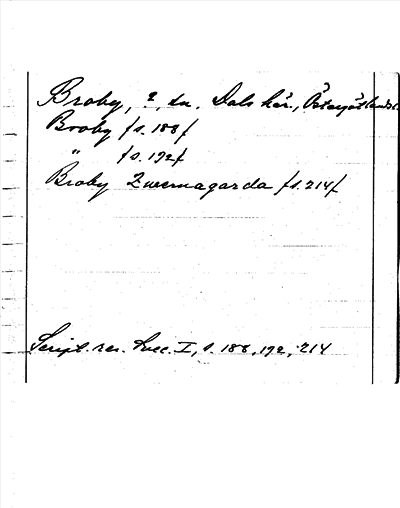 Broby, ?, sn. Dals här., Östergötlands l.
Broby /s. 188/
" /s. 192/
Broby Zwernagarda /s. 214/
Script. rer. Svec. I, s. 188, 192, 214